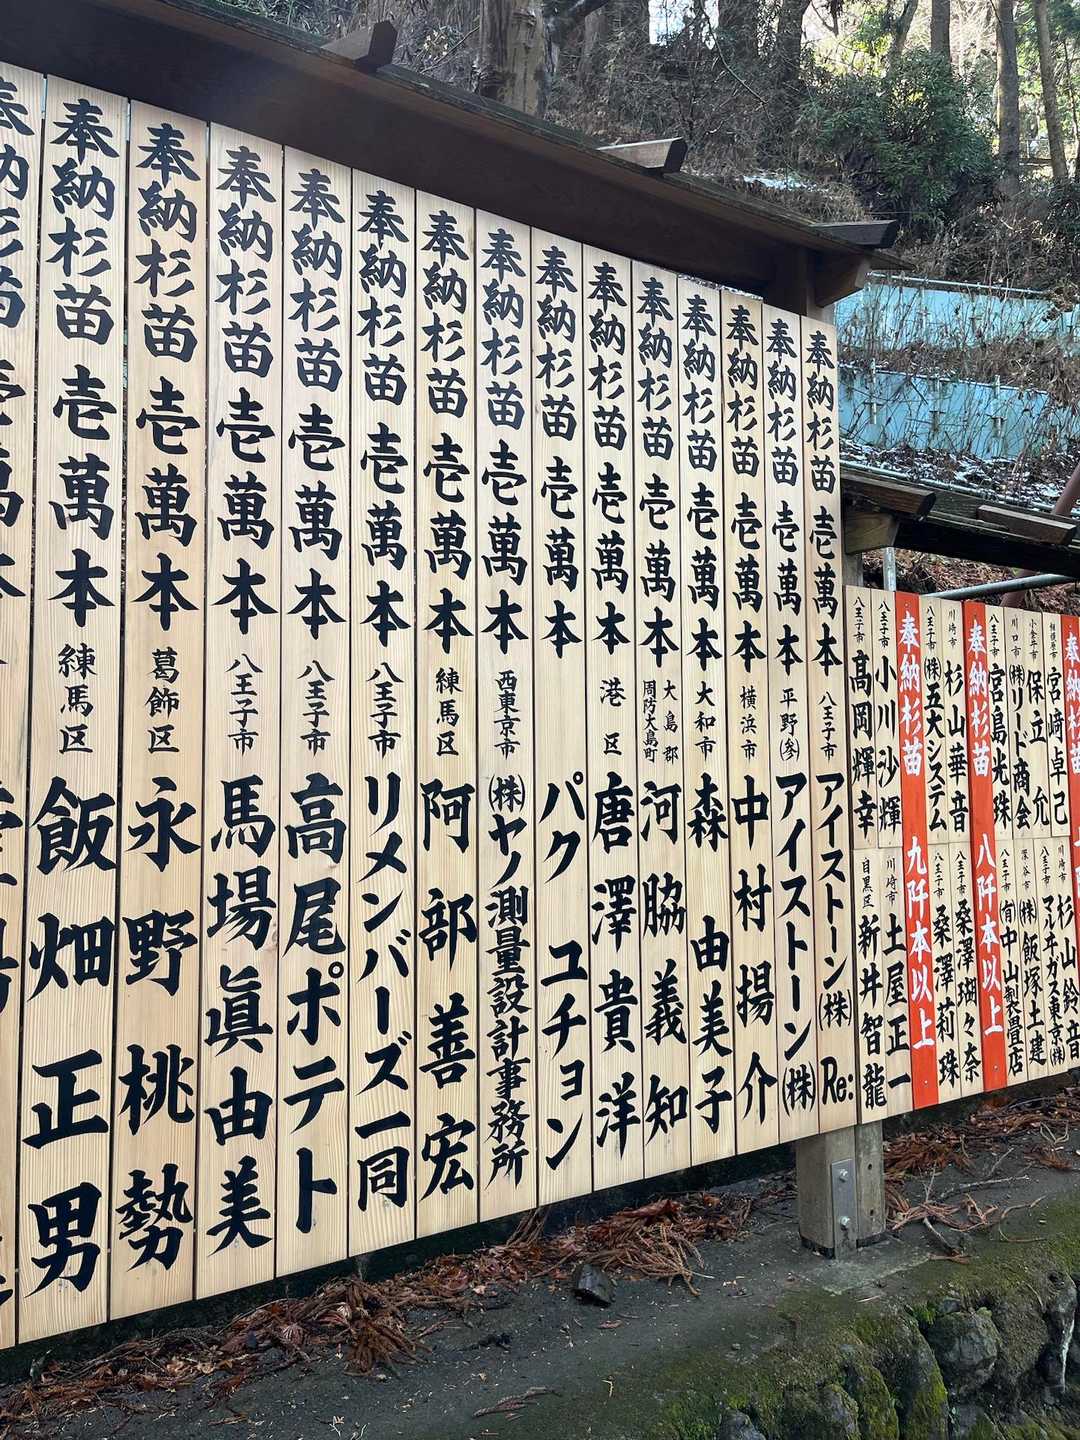 奉納杉苗 壱萬本 アイストーン(株)Re: 八王子市
奉納杉苗 壱萬本 平野(参) アイストーン(株)
奉納杉苗 壱萬本 横浜市 中村揚介
奉納杉苗 壱萬本 大和市 森 由美子
奉納杉苗 壱萬本 大島郡 周防大島町 河脇義知
奉納杉苗 壱萬本 港区 唐澤貴洋
奉納杉苗 壱萬本 パク ユチョン
奉納杉苗 壱萬本 西東京市 (株)ヤノ測量設計事務所
奉納杉苗 壱萬本 練馬区 阿部善宏
奉納杉苗 壱萬本 八王子市 リメンバーズ一同
奉納杉苗 壱萬本 八王子市 高尾ポテト
奉納杉苗 壱萬本 八王子市 馬場眞由美
奉納杉苗 壱萬本 葛飾区 永野桃勢
奉納杉苗 壱萬本 練馬区 飯畑正男
奉納杉苗
相模原市 宮崎卓己
小金井市 保立允
川口市 (株)リード商会
八王子市 宮島光珠
川崎市 杉山鈴音
八王子市 マルヰガス東京(株)
深谷市 (株)飯塚土建
八王子市 (有)中山製畳店
奉納杉苗 八阡本以上
川崎市 杉山華音
八王子市 (株)五大システム
八王子市 桑澤瑚々奈
八王子市 桑澤莉珠
奉納杉苗 九阡本以上
八王子市 小川沙輝
八王子市 髙岡輝幸
川崎市 土屋正一
目黒区 新井智龍